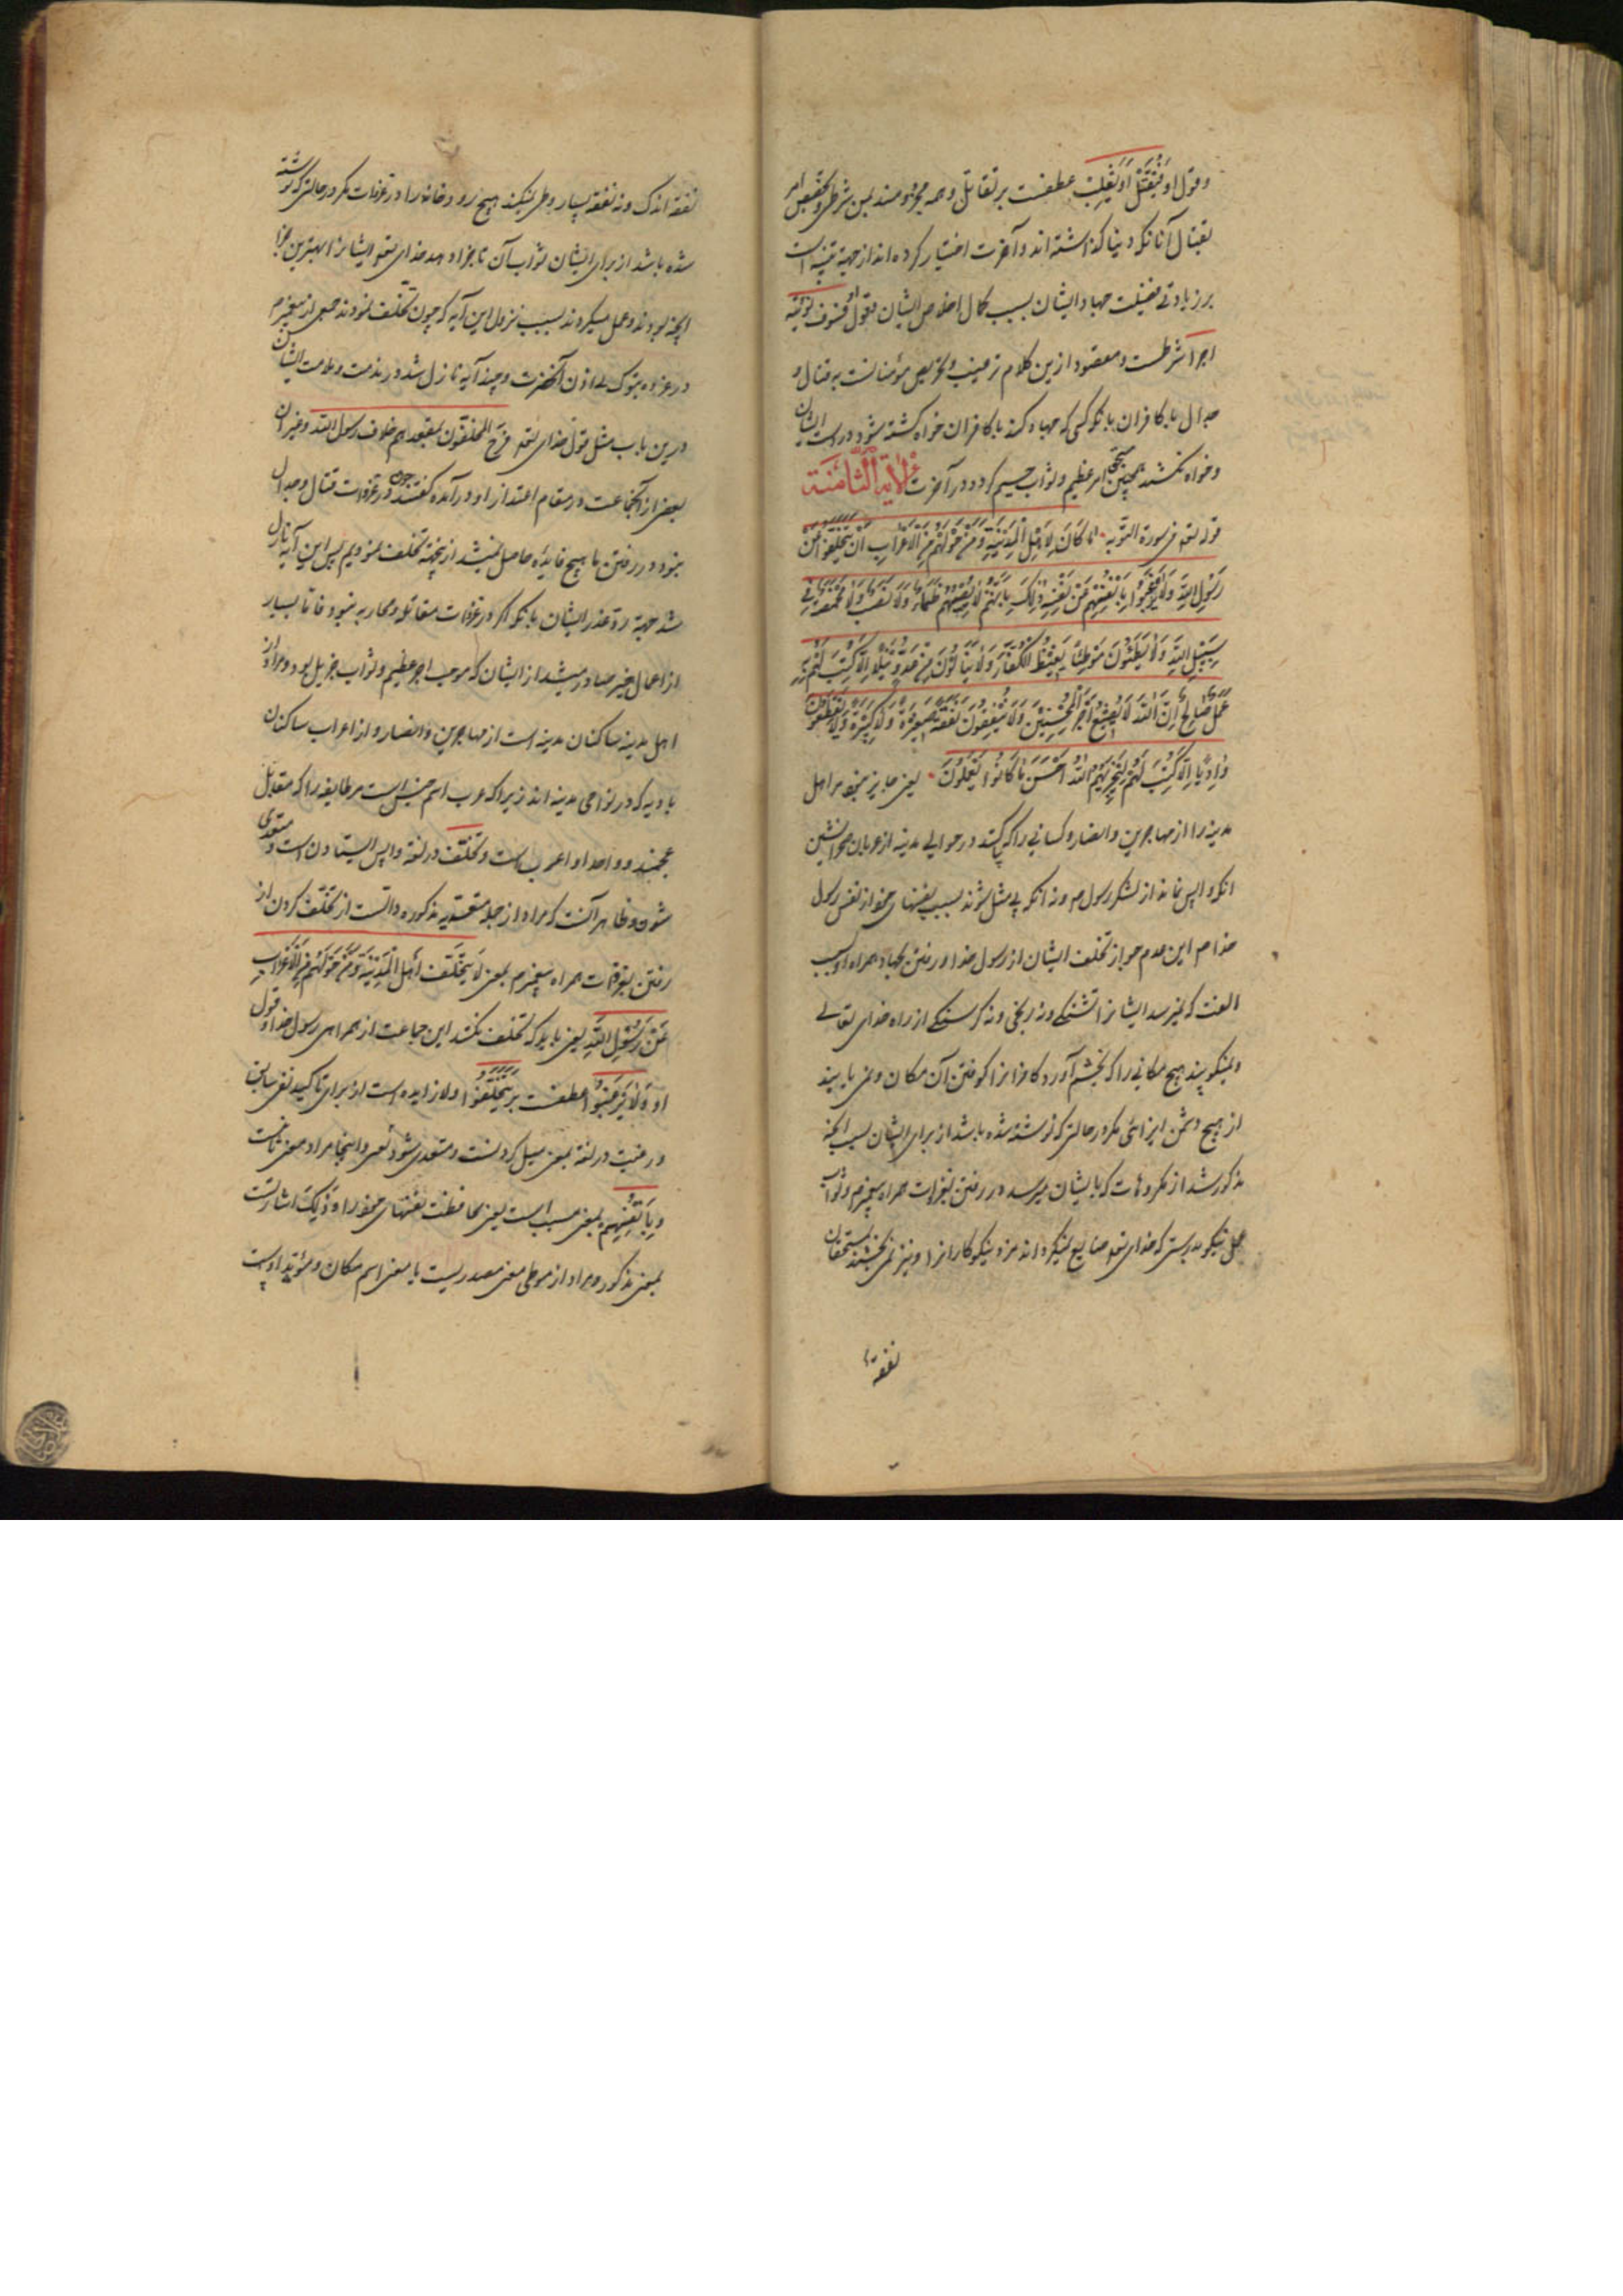 و قول او فیقتل او یغلب عطفست بر یقاتل و همه مجزومند بمن شرطی و تخصیص امر
بقتال آنانکه دنیا گذاشته‌اند و آخرت اختیار کرده‌اند از جهة تنبیه است
بر زیادتی فضیلت جهاد ایشان بسبب کمال اخلاص ایشان و قول او فسوف نؤتیه
اجرا شرطست و مقصود ازین کلام ترغیب و تحریص مؤمنانست بر قتال و
جدال با کافران بآنکه کسی که جهاد کند با کافران خواه کشته شود در دست ایشان
و خواه نکشند همچنین مستحق اجر عظیم و ثواب جسیم گردد در آخرت الآیة الثامنة
قوله تعه فی سورة التوبه ما کَانَ لِاَهْلِ الْمَدِینَةِ وَمَنْ حَوْلَهُمْ مِنَ الْاَعْرَابِ اَنْ یَتَخَلَّفُوا عَنْ
رَسُولِ اللّهِ وَلَا یَرْغَبُوا بِاَنْفُسِهِمْ عَنْ نَفْسِهِ ذلِکَ بِاَنَّهُمْ لَا یُصِیبُهُمْ ظَمَاءٌ وَلَا نَصَبٌ وَلَا مَخْمَصَةٌ فِی
سَبِیلِ اللّهِ وَلَا یَطَئُونَ مَوْطِئًا یَغِیظُ الْکُفَّارَ وَلَا یَنَالُونَ مِنْ عَدُوٍّ نَیْلًا اِلَّا کُتِبَ لَهُمْ بِهِ
عَمَلٌ صَالِحٌ اِنَّ اللّهَ لَا یُضِیعُ اَجْرَ الْمُحْسِنِینَ وَلَا یُنْفِقُونَ نَفَقَةً صَغِیرَةً وَلَا کَبِیرَةً وَلَا یَقْطَعُونَ
وَادِیًا اِلَّا کُتِبَ لَهُمْ لِیَجْزِیَهُمُ اللّهُ اَحْسَنَ مَا کَانُوا یَعْمَلُونَ یعنی جایز نیست مر اهل
مدینه را از مهاجرین و انصار و کسانی را که باشند در حوالی مدینه از عربان صحرانشین
آنکه واپس مانند از لشکر رسول م و نه آنکه بسبب نفسهای خود از نفس رسول
خدا ص این عدم جواز تخلف ایشان از رسول خدا و رفتن بجهاد همراه او بسبب
آنست که نمیرسد ایشانرا تشنگی و نه رنجی و نه گرسنگی از راه خدای تعالی
و نمیکوبند هیچ مکانی را که بخشم آورد کافرانرا کوفتن آن مکان و نمی‌یابند
از هیچ دشمن ایذائی مگر در حالتی که نوشته شده باشد از برای ایشان بسبب آنچه
مذکور شد از مکروهات که بایشان میرسد در رفتن بغزوات همراه پیغمبر م ثواب
عمل نیکو بدرستی که خدای تعه ضایع نمیگرداند مزد نیکوکارانرا و نیز نمی‌بخشند بمستحقان
نفقهٔ
نفقه اندک و نه نفقه بسیار و طی نمیکنند هیچ رودخانه را در غزوات مگر در حالتی که نوشته
شده باشد از برای ایشان ثواب آن تا جزا دهد خدای تعه ایشانرا بهترین جزا
آنچه بودند و عمل میکردند سبب نزول این آیه که چون تخلف نمودند جمعی از پیغمبر م
در غزوه تبوک بی اذن آنحضرت و چند آیه نازل شد در مذمت و ملامت ایشان
درین باب مثل قول خدای تعه فرح المخلفون بمقعدهم خلاف رسول الله و غیر آن
بعضی از آنجماعت در مقام اعتذار او درآمده گفتند چون در غزوات قتال و جدال
نبود و در رفتن ما هیچ فایده حاصل نمیشد ازینجهة تخلف نمودیم پس این آیه نازل
شد جهة رد عذر ایشان بآنکه اگر در غزوات مقاتله و محاربه نبود فاما بسیار
از اعمال خیر صادر میشد از ایشان که موجب اجر عظیم و ثواب جزیل بود و مراد از
اهل مدینه ساکنان مدینه است از مهاجرین و انصار و از اعراب ساکنان
بادیه که در نواحی مدینه‌اند زیرا که عرب اسم جنس است مر طایفه را که مقابل
عجمند و واحد او اعرب است و تخلف در لغة واپس ایستادن است و متعدی
شود و ظاهر آنست که مراد از جمله متصدیه مذکوره دالست از تخلف کردن از
رفتن بغزوات همراه پیغمبر م بمعنی لَا یَتَخَلَّفْ اَهْلُ الْمَدِینَةِ وَمَنْ حَوْلَهُمْ مِنَ الْاَعْرَابِ
عَنْ رَسُولِ اللّهِ یعنی باید که تخلف نکنند این جماعت از همراهی رسول خدا و قول
او وَلَا یَرْغَبُوا عطفست بر یَتَخَلَّفُوا و لا زایده است از برای تاکید نفی سابق
و رغبت در لغة بمعنی میل کردنست و متعدی شود بعن و اینجا مراد معنی ثانیست
و بِاَنْفُسِهِمْ بمعنی مسبب است یعنی محافظت نفسهای خود را و ذلِکَ اشارتست
بمعنی مذکور و مراد از موطئ معنی مصدریست یا معنی اسم مکان و مؤید اوست